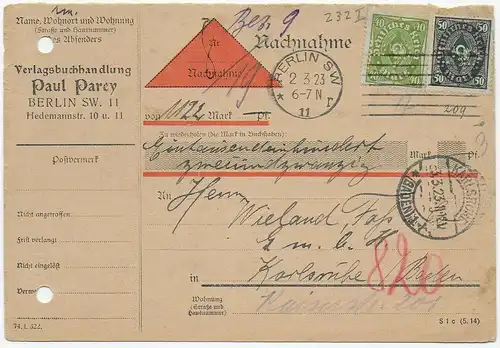 Name, Wohnort und Wohnung
(Straße und Hausnummer)
des Absenders
Verlagsbuchhandlung
Paul Parey
BERLIN SW. 11
Hedemannstr. 10 u. 11
Postvermerk
Nicht angetroffen
Frist verlangt
Nicht eingelöst
74. I. 322.
Bez. 9
232 I
Nachnahme
Nr.
Nachnahme
BERLIN SW
2.3.23
6-7 N
* 11 r
Deutsches Reich
Deutsches Reich
50
209
von 1122 Mark Pf.
Zu wiederholen (die Mark in Buchstaben):
Eintausendeinhundert
zweiundzwanzig
An Herrn
Wieland Fass
G.m.b.H.
in Karlsruhe Baden
820
Wohnung
(Straße und
Hausnummer)
Kaiserstr. 209
KARLSRUHE
(BADEN)
S l c (5. 14)